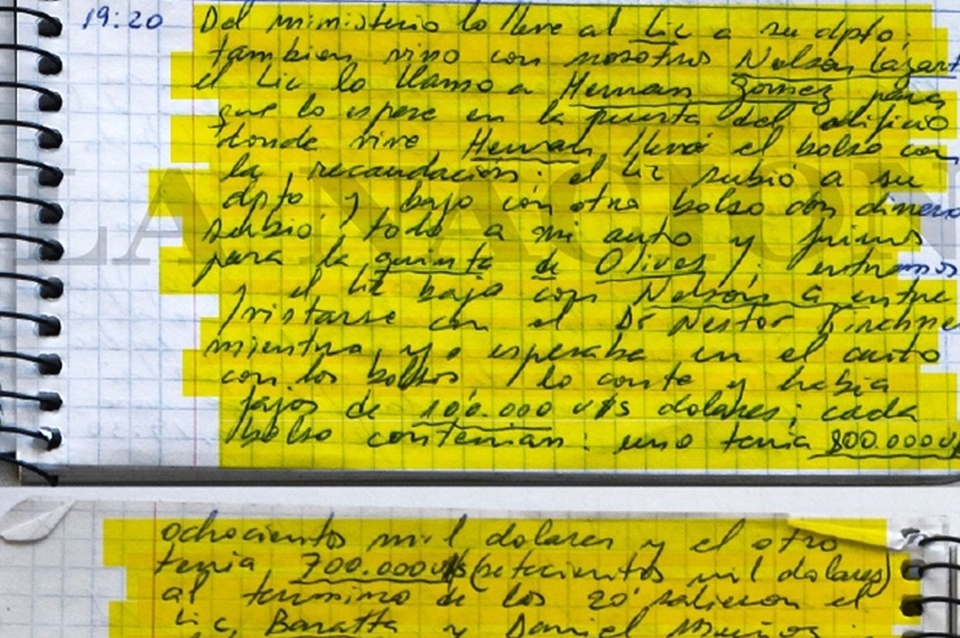 19:20 Del ministerio lo lleve al Lic a su dpto;
tambien vino con nosotros Nelson Lazart
el Lic lo llamo a Hernan Gomez para
que lo espere en la puerta del edificio
donde vive, Hernan llevó el bolso con
la recaudación; el Lic subió a su
dpto y bajo con otro bolso con dinero
subió todo a mi auto y fuimos
para la quinta de Olivos; entramos
y el Lic bajo con Nelson a entre
vistarse con el Dr Nestor Kirchne
mientras yo esperaba en el auto
con los bolsos, lo conte y habia
fajos de 100.000 u$s dolares; cada
bolso contenian: uno tenia 800.000 u$
LA NACION
ochocientos mil dolares y el otro
tenia 700.000 u$s (setecientos mil dolares)
al termino de los 20' salieron el
Lic, Baratta y Daniel Muñoz